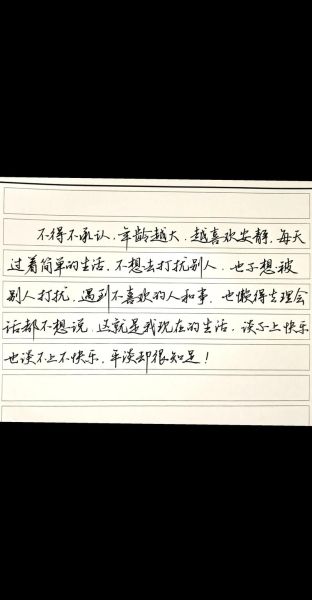 不得不承认，年龄越大，越喜欢安静，每天
过着简单的生活，不想去打扰别人，也不想被
别人打扰，遇到不喜欢的人和事，也懒得去理会
话都不想说，这就是我现在的生活，谈不上快乐
也谈不上不快乐，平淡却很知足！